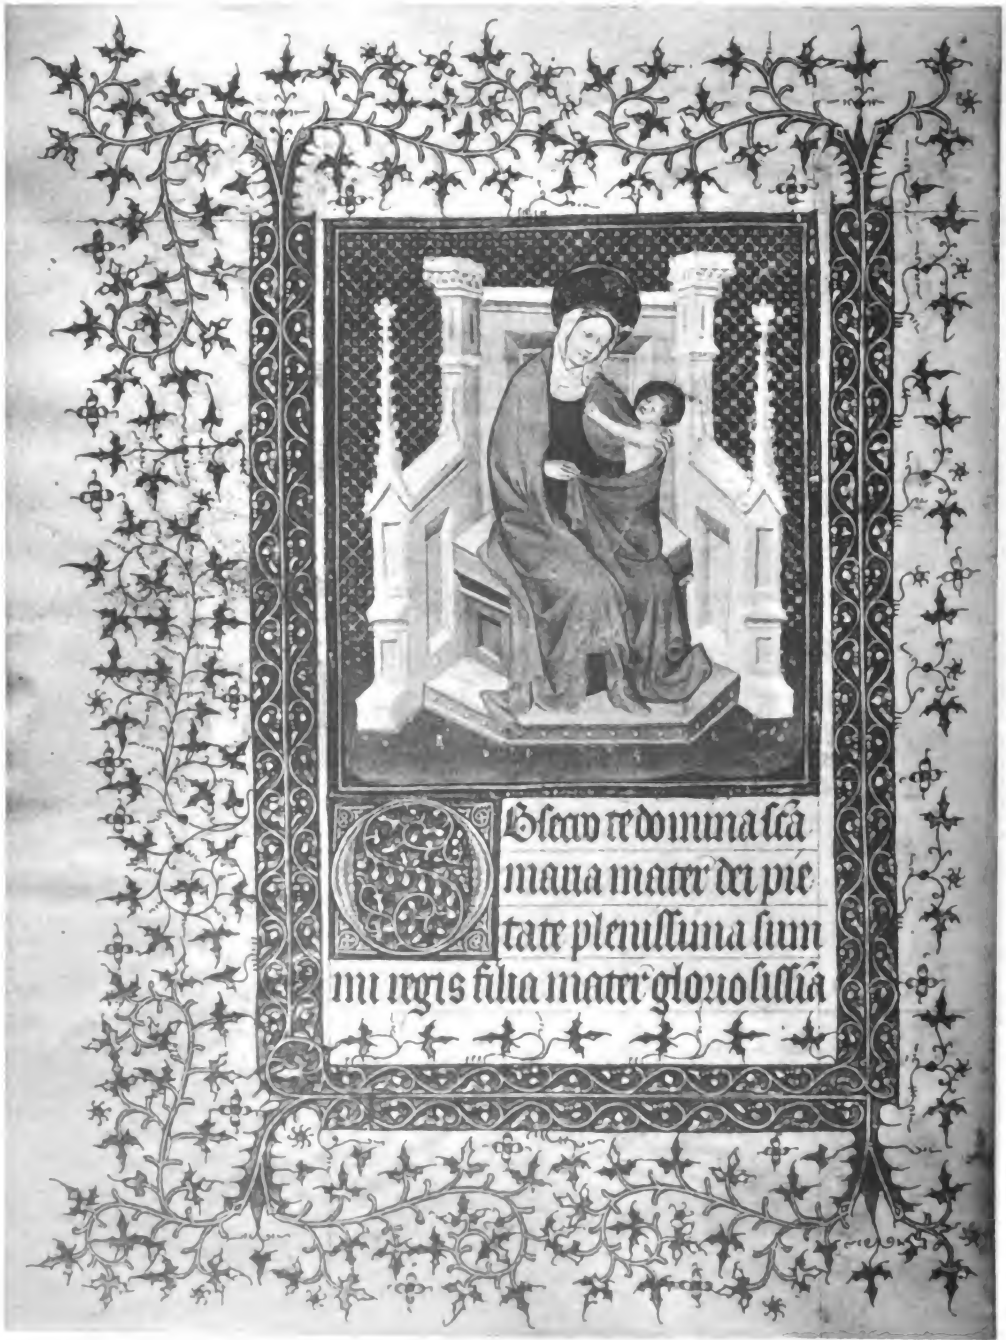 OBsecro te domina scā
maria mater dei pie
tate plenissima sum
mi regis filia mater gloriosissīa